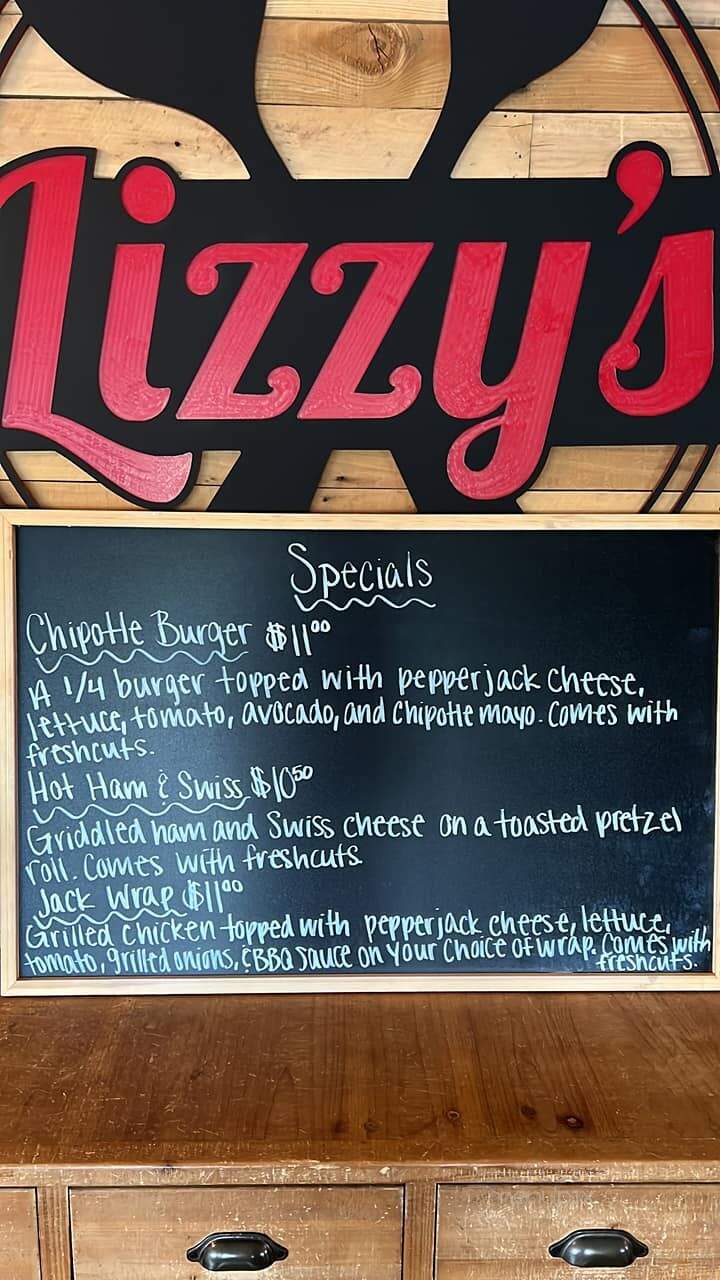 Lizzy's
Specials
Chipotle Burger $11⁰⁰
A 1/4 burger topped with pepperjack cheese,
lettuce, tomato, avocado, and chipotle mayo. Comes with
freshcuts.
Hot Ham & Swiss $10⁵⁰
Griddled ham and Swiss cheese on a toasted pretzel
roll. Comes with freshcuts.
Jack Wrap $11⁰⁰
Grilled chicken topped with pepperjack cheese, lettuce,
tomato, grilled onions, & BBQ sauce on your choice of wrap. Comes with
freshcuts.